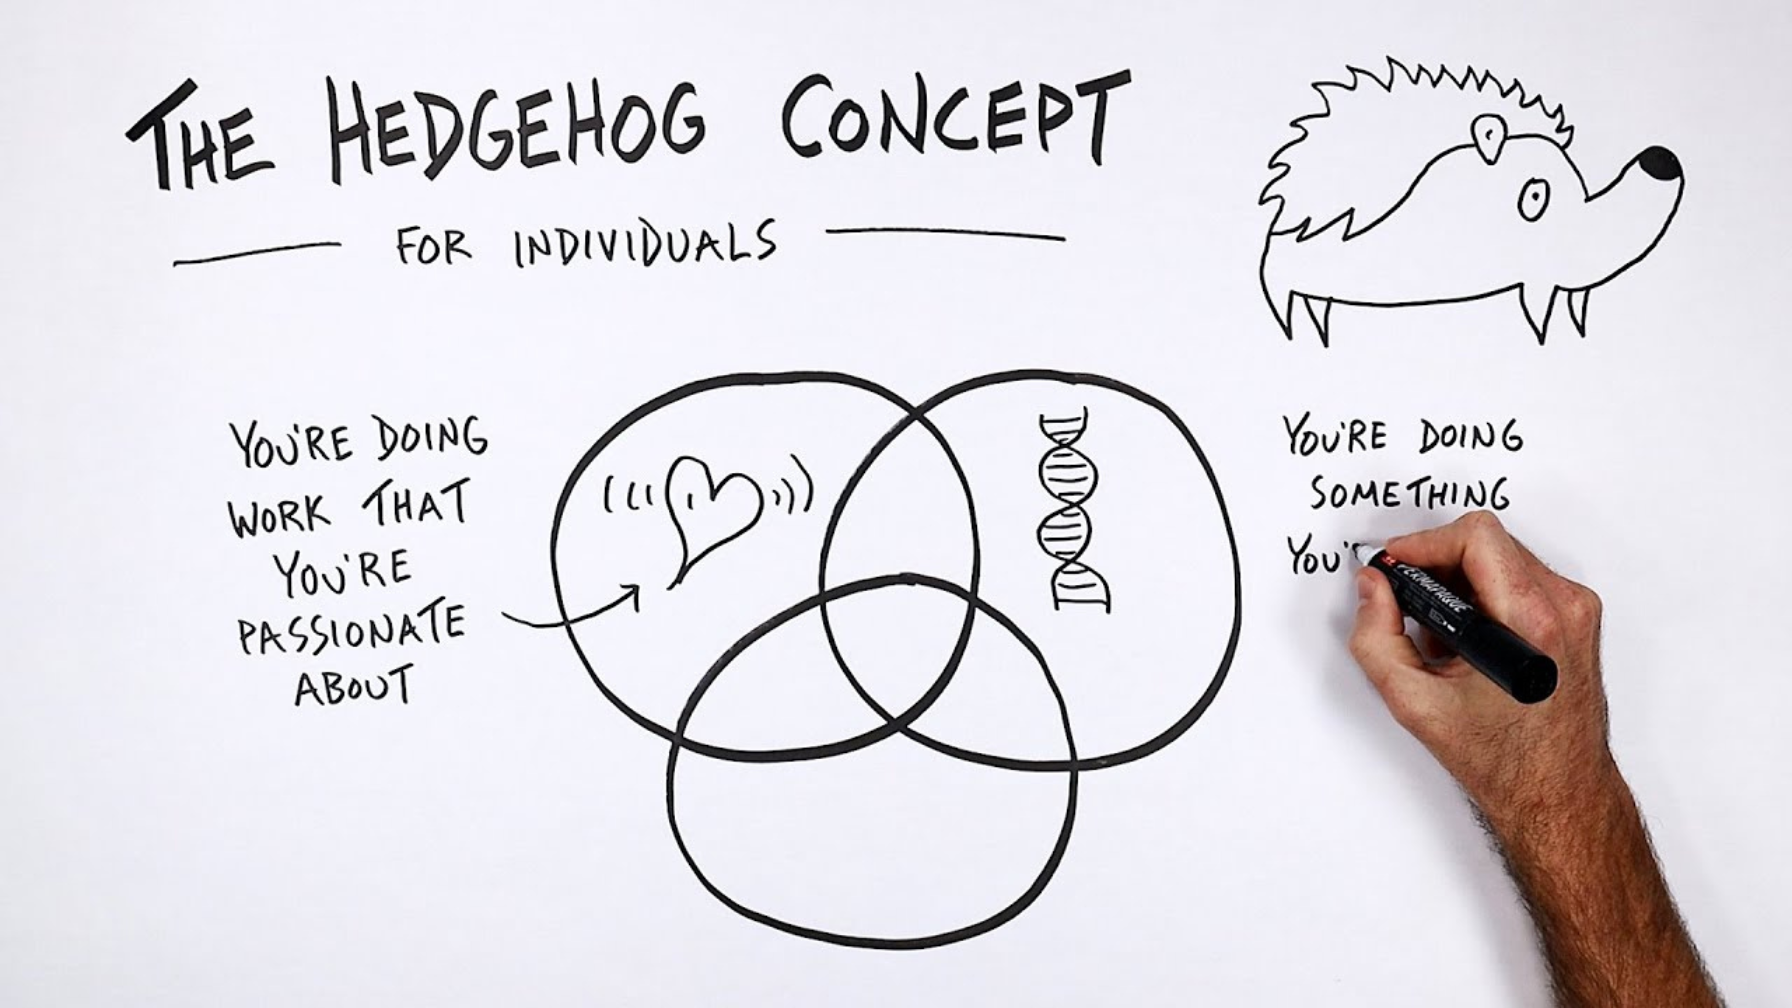 THE HEDGEHOG CONCEPT
FOR INDIVIDUALS
YOU'RE DOING
WORK THAT
YOU'RE
PASSIONATE
ABOUT
YOU'RE DOING
SOMETHING
YOU'R
PERMAPAQUE